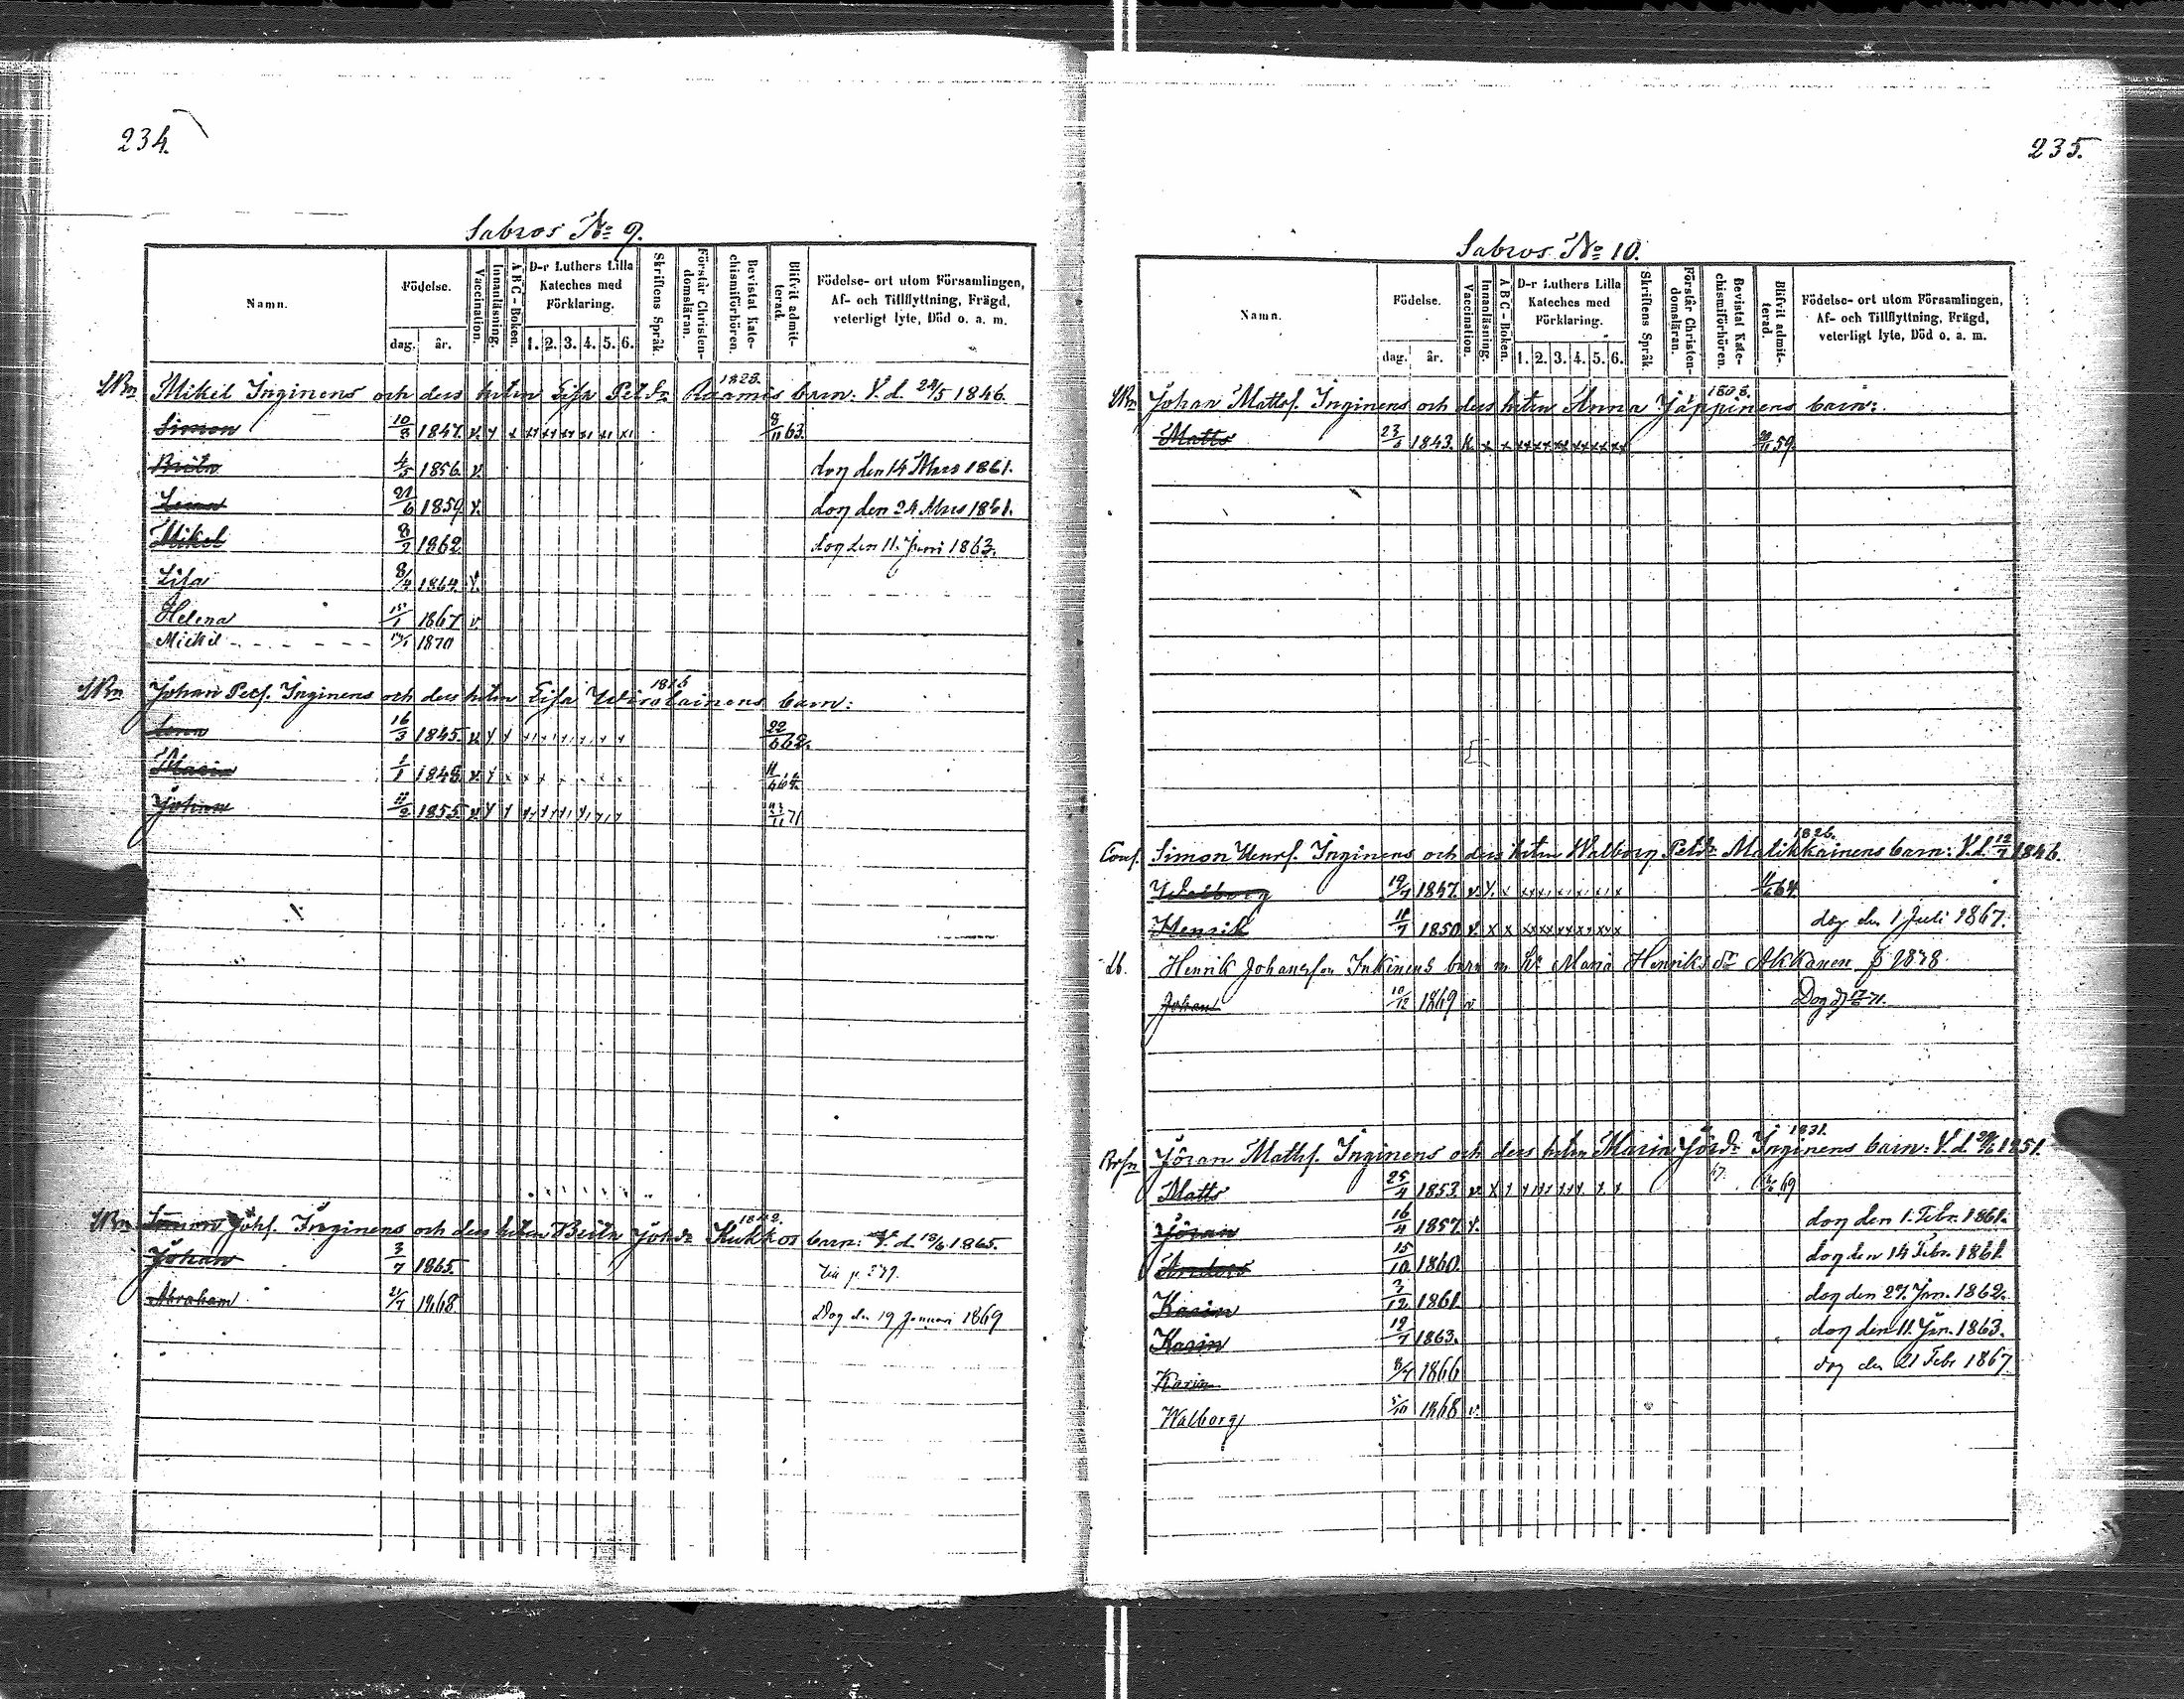 234.
Sabros No 9.
Namn.
Födelse.
dag. år.
Vaccination.
Innanläsning.
A B C - Boken.
D-r Luthers Lilla Kateches med Förklaring.
1. 2. 3. 4. 5. 6.
Skriftens Språk.
Förstår Christendomsläran.
Bevistat Katechismiförhören.
Blifvit admitterad.
Födelse- ort utom Församlingen, Af- och Tillflyttning, Frägd, veterligt lyte, Död o. a. m.
1823.
Mikel Inginens och dess hustru Lisa Petsdr Raamis barn: V. d. 24/5 1846.
Simon 10/8 1847. v. 8/11 63.
Brita 4/5 1856. v. dog den 14 Mars 1861.
Lena 21/6 1859. v. dog den 24 Mars 1861.
Mikel 8/7 1862 dog den 11. Juni 1863.
Lisa 8/4 1864. v.
Helena 15/1 1867 v.
Mickel 1870
Johan Petf. Inginens och dess hustru Lisa Wirolainens barn:
Lena 16/3 1845. v. 22/6 62.
Maria 1/1 1848. v.
Johan 11/2 1855. v. 71
Simon Johf. Inginens och dess hustru Brita Johsdr Kukkos barn: V. d. 18/6 1865.
Johan 3/7 1865.
Abraham 21/7 1868 Dog den 19 Januari 1869
235.
Sabros No 10.
Namn.
Födelse.
dag. år.
Vaccination.
Innanläsning.
A B C - Boken.
D-r Luthers Lilla Kateches med Förklaring.
1. 2. 3. 4. 5. 6.
Skriftens Språk.
Förstår Christendomsläran.
Bevistat Katechismiförhören.
Blifvit admitterad.
Födelse- ort utom Församlingen, Af- och Tillflyttning, Frägd, veterligt lyte, Död o. a. m.
Johan Mattsf. Inginens och dess hustru Anna Jäppinens barn:
Matts 23/6 1843. 59.
1826.
Simon Henrf. Inginens och dess hustru Walborg Petdr Malikkainens barn: V. d. 12/7 1846.
Walborg 19/7 1847. v. 64.
Henrik 11/7 1850 v. dog den 1 Juli 1867.
Henrik Johansson Inkinens barn m. Maria Henriksdr Akkanen
Johan 10/12 1869 v
1831.
Jöran Mattsf. Inginens och dess hustru Maria Jörsdr Inginens barn: V. d. 1851.
Matts 25/4 1853. v. 69
Jöran 16/4 1857. v. dog den 1. Febr. 1861.
Anders 15/10 1860. dog den 14 Febr. 1861.
Karin 2/12 1861. dog den 27. Jan. 1862.
Karin 19/7 1863. dog den 11. Jan. 1863.
Karin 1866 dog den 21 Febr 1867.
Walborg 5/10 1868 v.